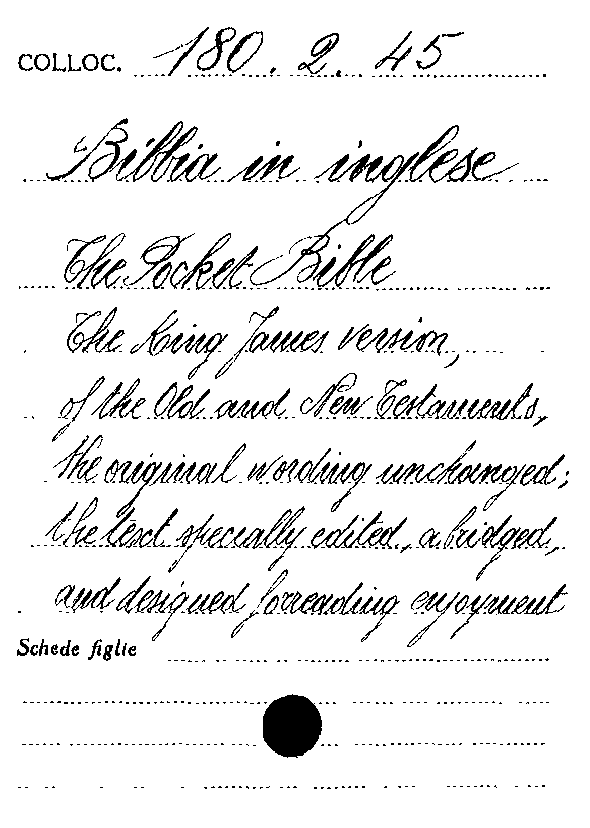 COLLOC. 180. 2. 45
Bibbia in inglese
The Pocket Bible
The King James version,
of the Old and New Testaments,
the original wording unchanged;
the text specially edited, abridged,
and designed for reading enjoyment
Schede figlie